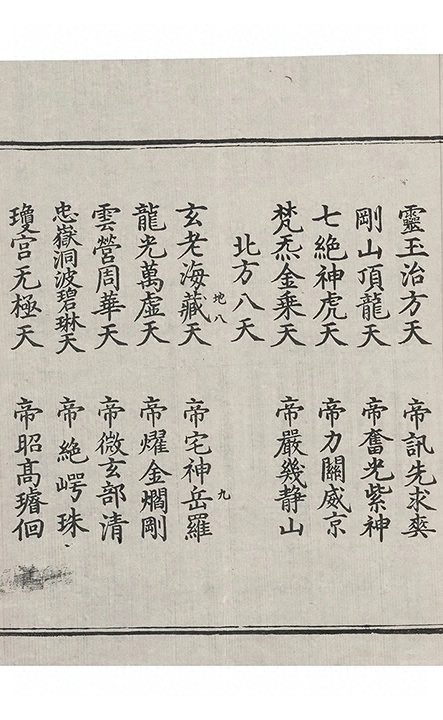 靈玉治方天 帝訊先求奭
剛山頂龍天 帝奮光紫神
七絶神虎天 帝力關威京
梵炁金乗天 帝嚴幾静山
北方八天
玄老海藏天 帝宅神岳羅
地八 九
龍光萬虚天 帝燿金燗剛
雲營周華天 帝微玄部清
忠嶽洞波碧琳天 帝絶崿珠
瓊宫无極天 帝昭髙璿佪